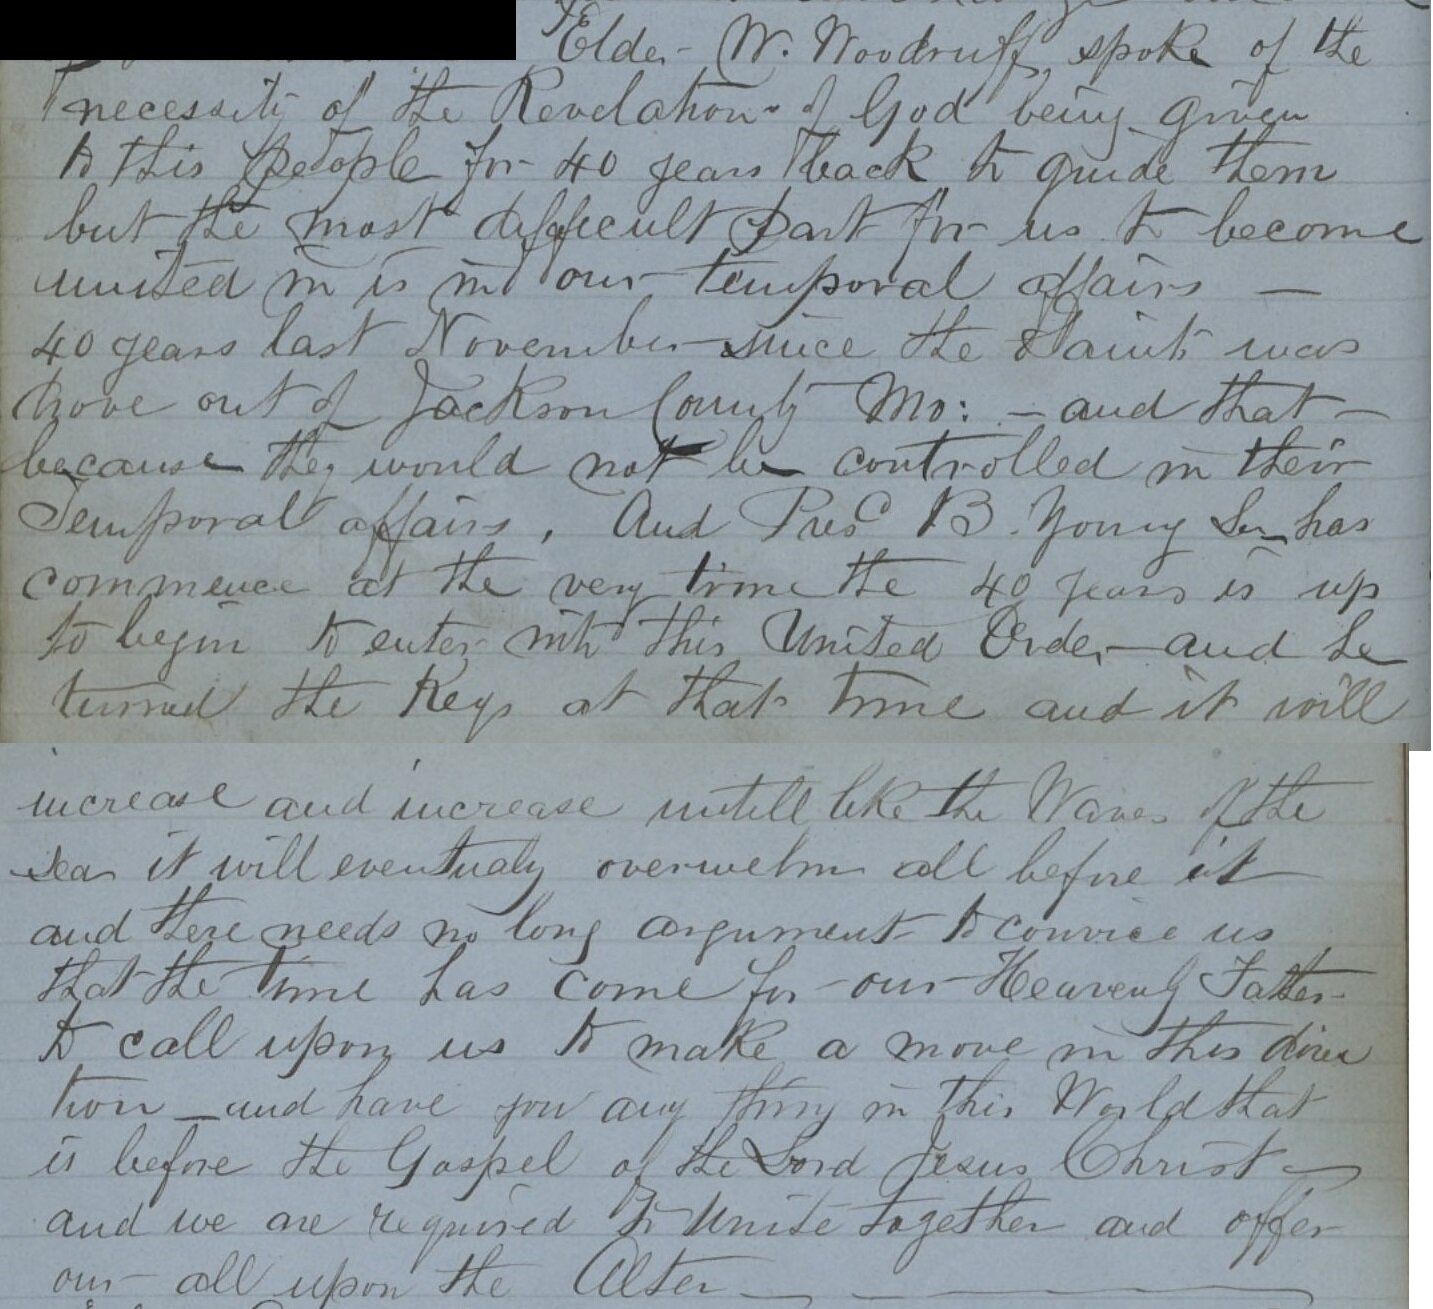 Elder W. Woodruff spoke of the
necessity of the Revelations of God being given
to this people for 40 years back to guide them
but the most difficult part for us to become
united in is in our temporal affairs —
40 years last November since the Saints was
drove out of Jackson County Mo: — and that —
because they would not be controlled in their
Temporal affairs, And Pres B. Young Sen has
commence at the very time the 40 years is up
to begin to enter into this United Order — and he
turned the Keys at that time and it will
increase and increase untill like the Waves of the
sea it will eventualy overwelm all before it
and there needs no long argument to convice us
that the time has come for our Heavenly Father
to call upon us to make a move in this direc
tion — and have you any thing in this World that
is before the Gospel of the Lord Jesus Christ —
and we are required to Unite together and offer
our all upon the Alter —